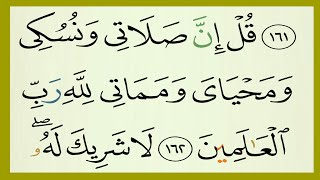 ﴿١٦١﴾ قُلۡ إِنَّ صَلَاتِي وَنُسُكِي
وَمَحۡيَايَ وَمَمَاتِي لِلَّهِ رَبِّ
ٱلۡعَٰلَمِينَ ﴿١٦٢﴾ لَا شَرِيكَ لَهُۥۖ